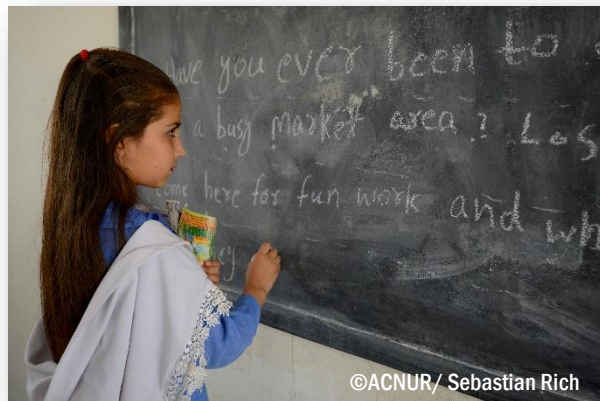 Have you ever been to
a busy market area? Los
Come here for fun work and wh
©ACNUR/ Sebastian Rich